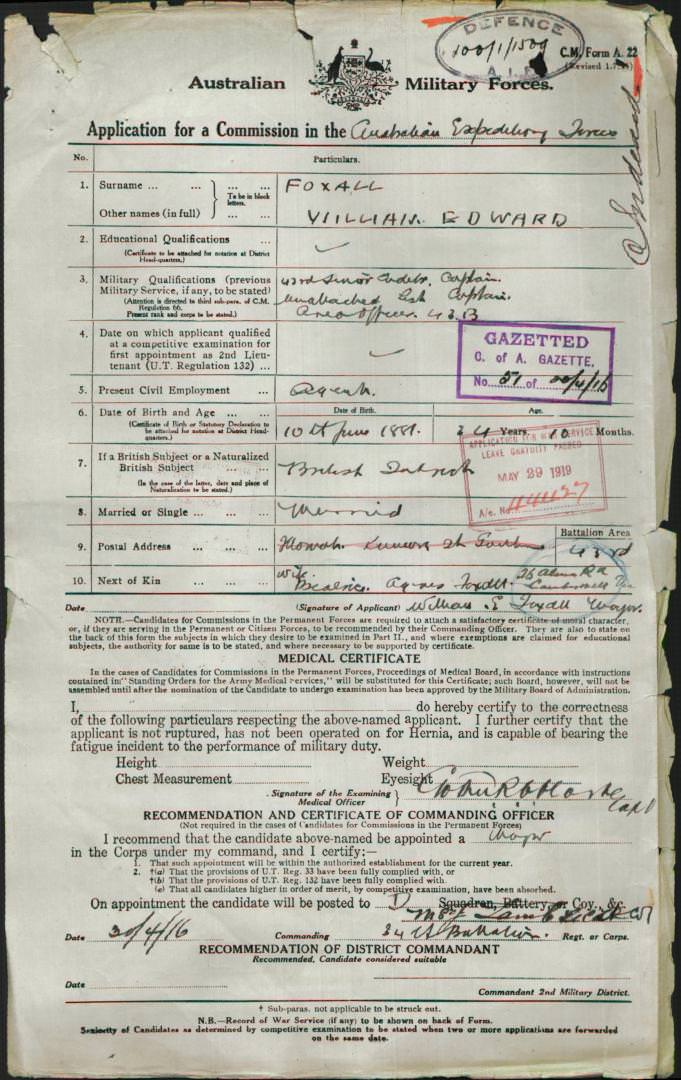 DEFENCE
100/1/1509
A.I.F.
C.M. Form A. 22
(Revised 1.7.)
Australian Military Forces.
Application for a Commission in the Australian Expeditionary Forces
No. Particulars.
1. Surname ... ... ... ... FOXALL
To be in block letters.
Other names (in full) ... ... WILLIAM EDWARD
2. Educational Qualifications ...
(Certificate to be attached for notation at District Head-quarters.)
3. Military Qualifications (previous Military Service, if any, to be stated) Senior Cadets, Captain.
(Attention is directed to third sub-para. of C.M. Regulation 66.
Present rank and corps to be stated.)
Unattached List Captain.
Area Officer. 43B
4. Date on which applicant qualified at a competitive examination for first appointment as 2nd Lieutenant (U.T. Regulation 132) ...
GAZETTED
C. of A. GAZETTE.
No. 51 of
5. Present Civil Employment ... Agent.
6. Date of Birth and Age ... ...
(Certificate of Birth or Statutory Declaration to be attached for notation at District Head-quarters.)
Date of Birth. Age.
10th June 1881. 34 Years. 10 Months.
APPLICATION FOR WAR SERVICE
LEAVE GRATUITY PASSED
MAY 29 1919
A/c. No.
7. If a British Subject or a Naturalized British Subject ... ...
(In the case of the latter, date and place of Naturalization to be stated.)
British Subject
8. Married or Single ... ... ... Married
9. Postal Address ... ... ...
Battalion Area
43rd
10. Next of Kin ... ... ... Wife
Beatrice Agnes Foxall
Date (Signature of Applicant) William E Foxall Major.
NOTE.—Candidates for Commissions in the Permanent Forces are required to attach a satisfactory certificate of moral character,
or, if they are serving in the Permanent or Citizen Forces, to be recommended by their Commanding Officer. They are also to state on
the back of this form the subjects in which they desire to be examined in Part II., and where exemptions are claimed for educational
subjects, the authority for same is to be stated, and where necessary to be supported by certificate.
MEDICAL CERTIFICATE
In the cases of Candidates for Commissions in the Permanent Forces, Proceedings of Medical Board, in accordance with instructions
contained in "Standing Orders for the Army Medical Services," will be substituted for this Certificate; such Board, however, will not be
assembled until after the nomination of the Candidate to undergo examination has been approved by the Military Board of Administration.
I, do hereby certify to the correctness
of the following particulars respecting the above-named applicant. I further certify that the
applicant is not ruptured, has not been operated on for Hernia, and is capable of bearing the
fatigue incident to the performance of military duty.
Height Weight
Chest Measurement Eyesight
Signature of the Examining Medical Officer Capt
RECOMMENDATION AND CERTIFICATE OF COMMANDING OFFICER
(Not required in the cases of Candidates for Commissions in the Permanent Forces)
I recommend that the candidate above-named be appointed a Major
in the Corps under my command, and I certify:—
1. That such appointment will be within the authorized establishment for the current year.
2. †(a) That the provisions of U.T. Reg. 33 have been fully complied with, or
†(b) That the provisions of U.T. Reg. 132 have been fully complied with.
(c) That all candidates higher in order of merit, by competitive examination, have been absorbed.
On appointment the candidate will be posted to D Squadron, Battery, or Coy., &c.
Date 20/4/16 Commanding 34th Battalion. Regt. or Corps.
RECOMMENDATION OF DISTRICT COMMANDANT
Recommended, Candidate considered suitable
Date
Commandant 2nd Military District.
† Sub-paras. not applicable to be struck out.
N.B.—Record of War Service (if any) to be shown on back of Form.
Seniority of Candidates as determined by competitive examination to be stated when two or more applications are forwarded
on the same date.